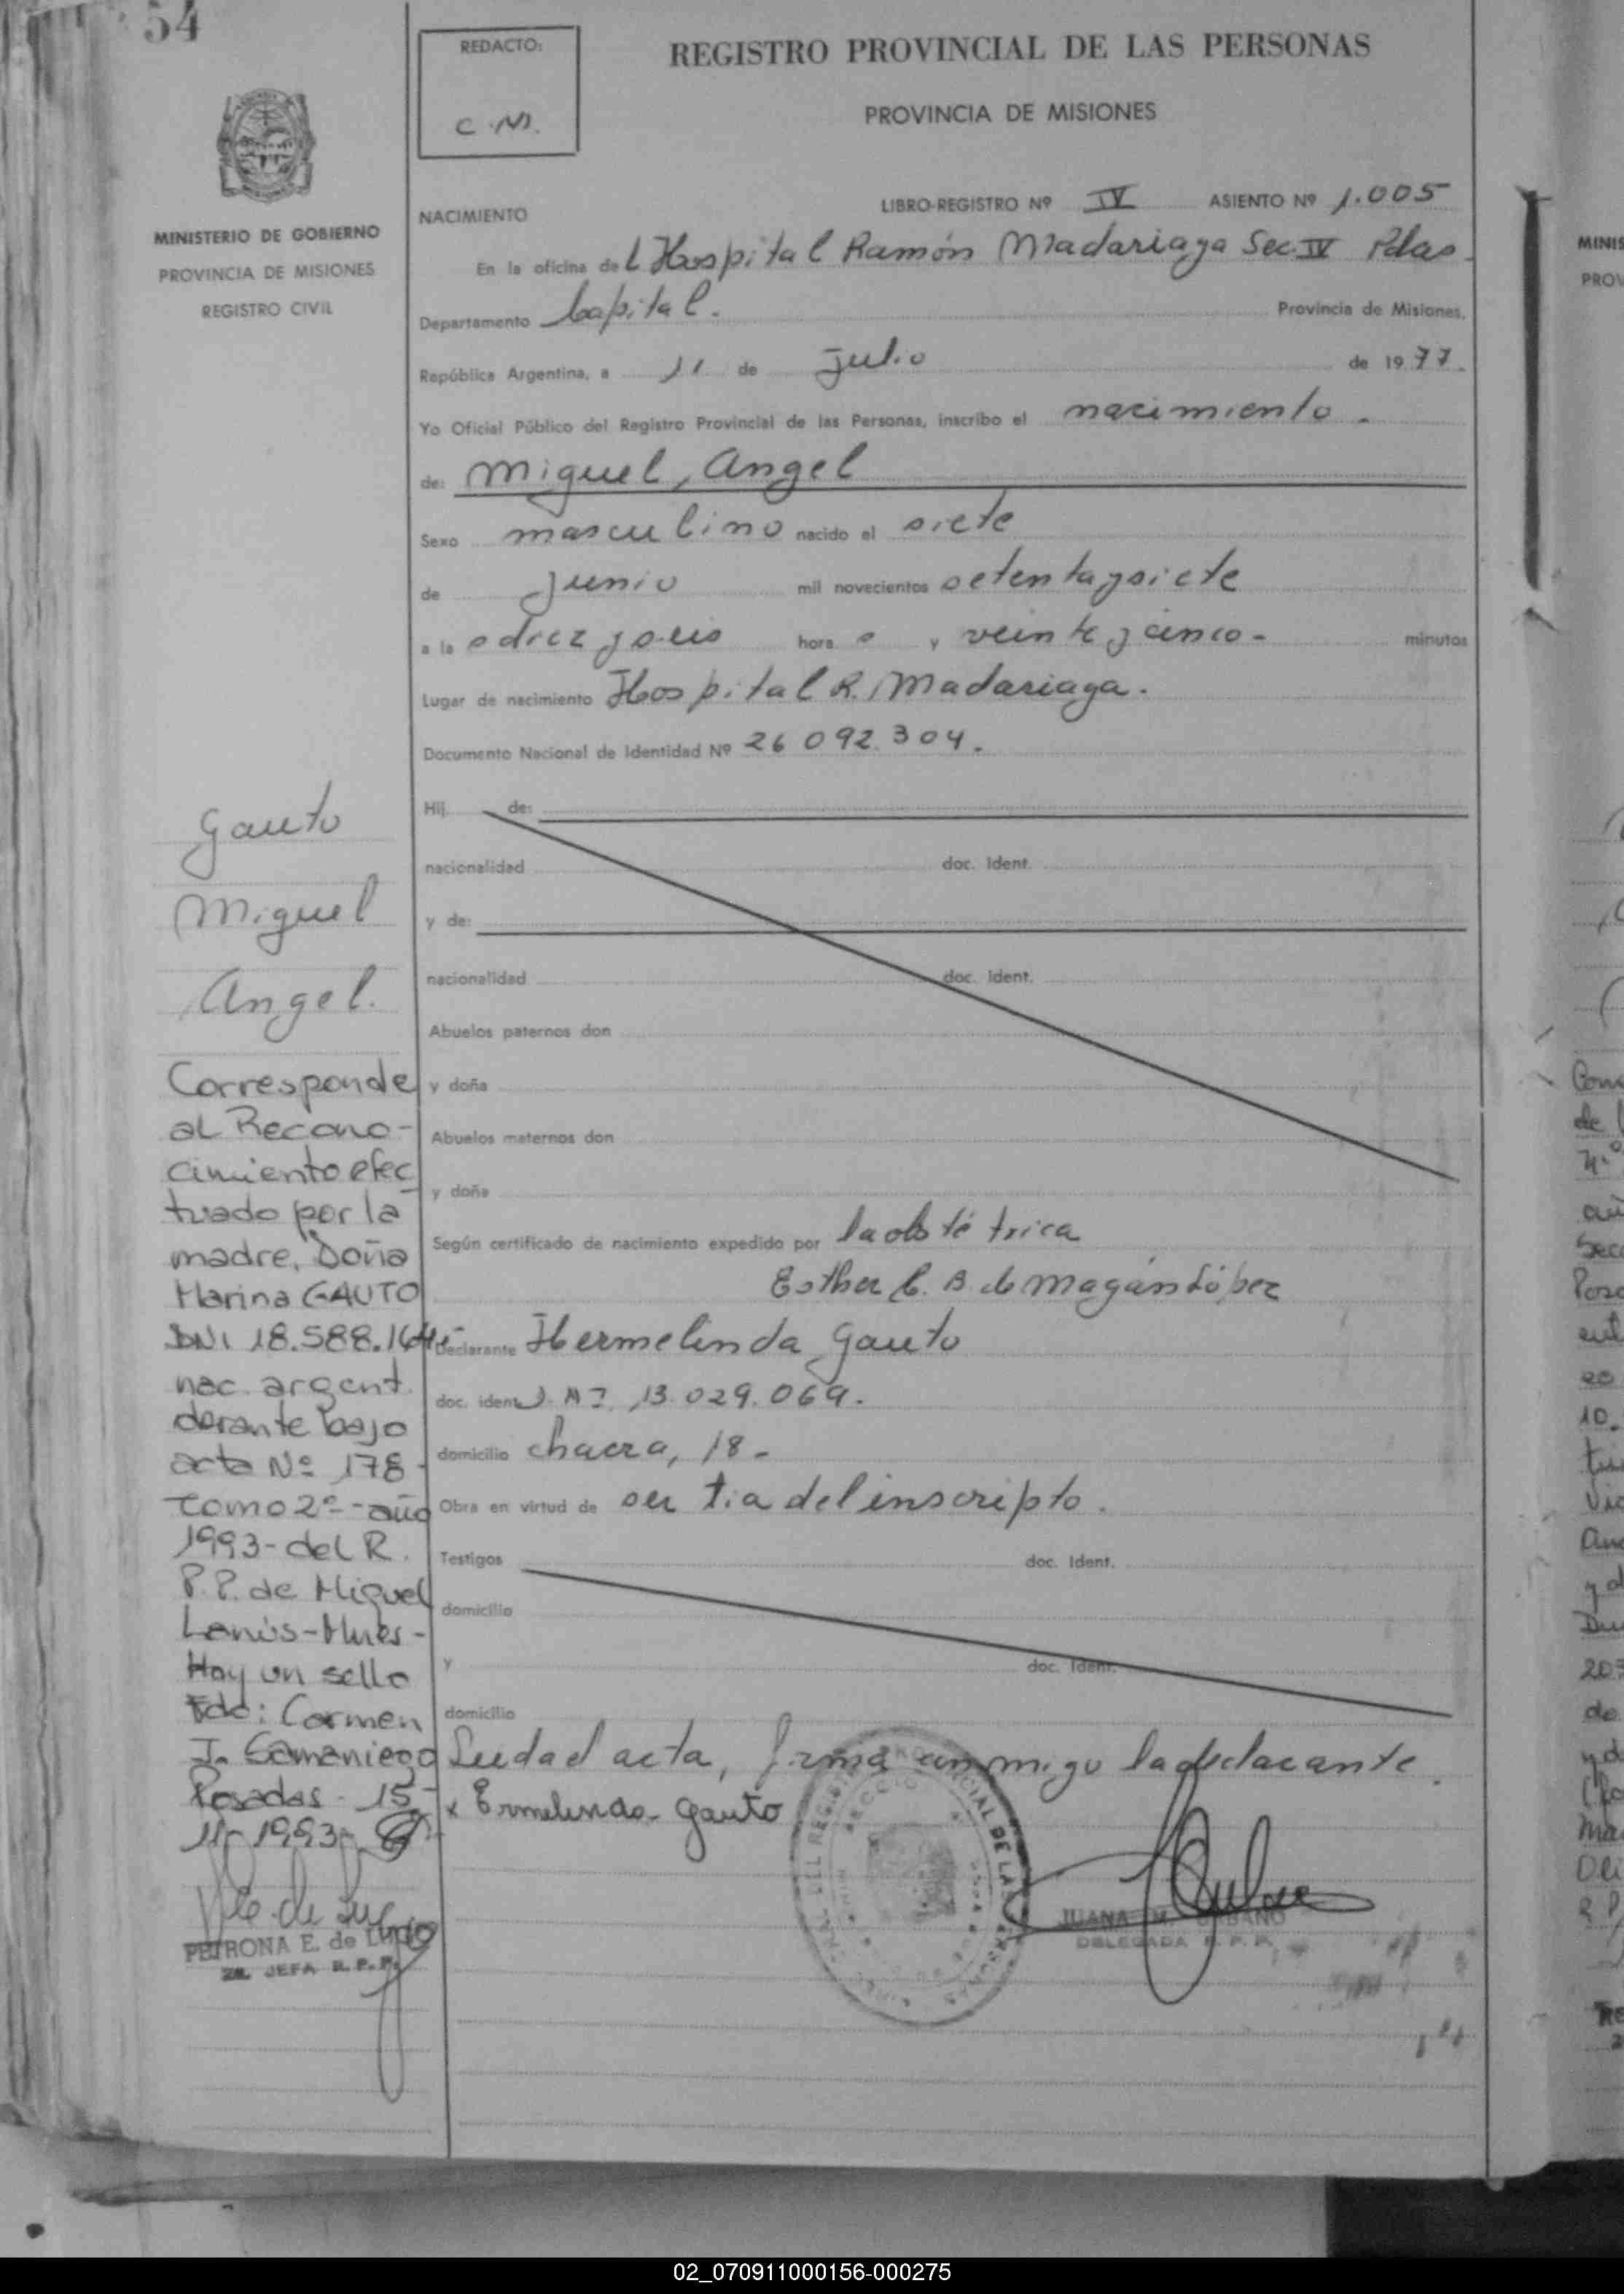 54
REDACTO:
C.N.
REGISTRO PROVINCIAL DE LAS PERSONAS
PROVINCIA DE MISIONES
MINISTERIO DE GOBIERNO
PROVINCIA DE MISIONES
REGISTRO CIVIL
NACIMIENTO
LIBRO-REGISTRO Nº IV ASIENTO Nº 1.005
En la oficina del Hospital Ramón Madariaga Sec. IV Pdas.
Departamento Capital. Provincia de Misiones,
República Argentina, a 11 de Julio de 1977.
Yo Oficial Público del Registro Provincial de las Personas, inscribo el nacimiento.
de: Miguel, Angel
Sexo masculino nacido el siete
de Junio mil novecientos setentaysiete
a las diez y seis horas y veinte y cinco- minutos
Lugar de nacimiento Hospital R. Madariaga.
Documento Nacional de Identidad Nº 26 092.304.
Hij. de:
nacionalidad doc. Ident.
y de:
nacionalidad doc. Ident.
Abuelos paternos don
y doña
Abuelos maternos don
y doña
Según certificado de nacimiento expedido por la obstétrica
Esther C. B. de Magán López
Declarante Hermelinda Gauto
doc. ident. 13.029.069.
domicilio chacra, 18-
Obra en virtud de ser tia del inscripto.
Testigos doc. Ident.
domicilio
y doc. Ident.
domicilio
Leida el acta, firma conmigo la declarante.
x Ermelinda Gauto
JUANA M. URBANO
DELEGADA R. P. P.
Gauto
Miguel
Angel.
Corresponde
al Recono-
cimiento efec
tuado por la
madre, Doña
Marina GAUTO
DNI 18.588.164-
nac. argent.
derante bajo
acta Nº 178-
Tomo 2º-año
1993-del R.
P.P. de Miguel
Lanús-Mnes-
Hay un sello
Fdo: Carmen
J. Samaniego
Posadas-15-
11-1993-
PETRONA E. de LUGO
JEFA R.P.P.
MINIS
PROV
02_070911000156-000275